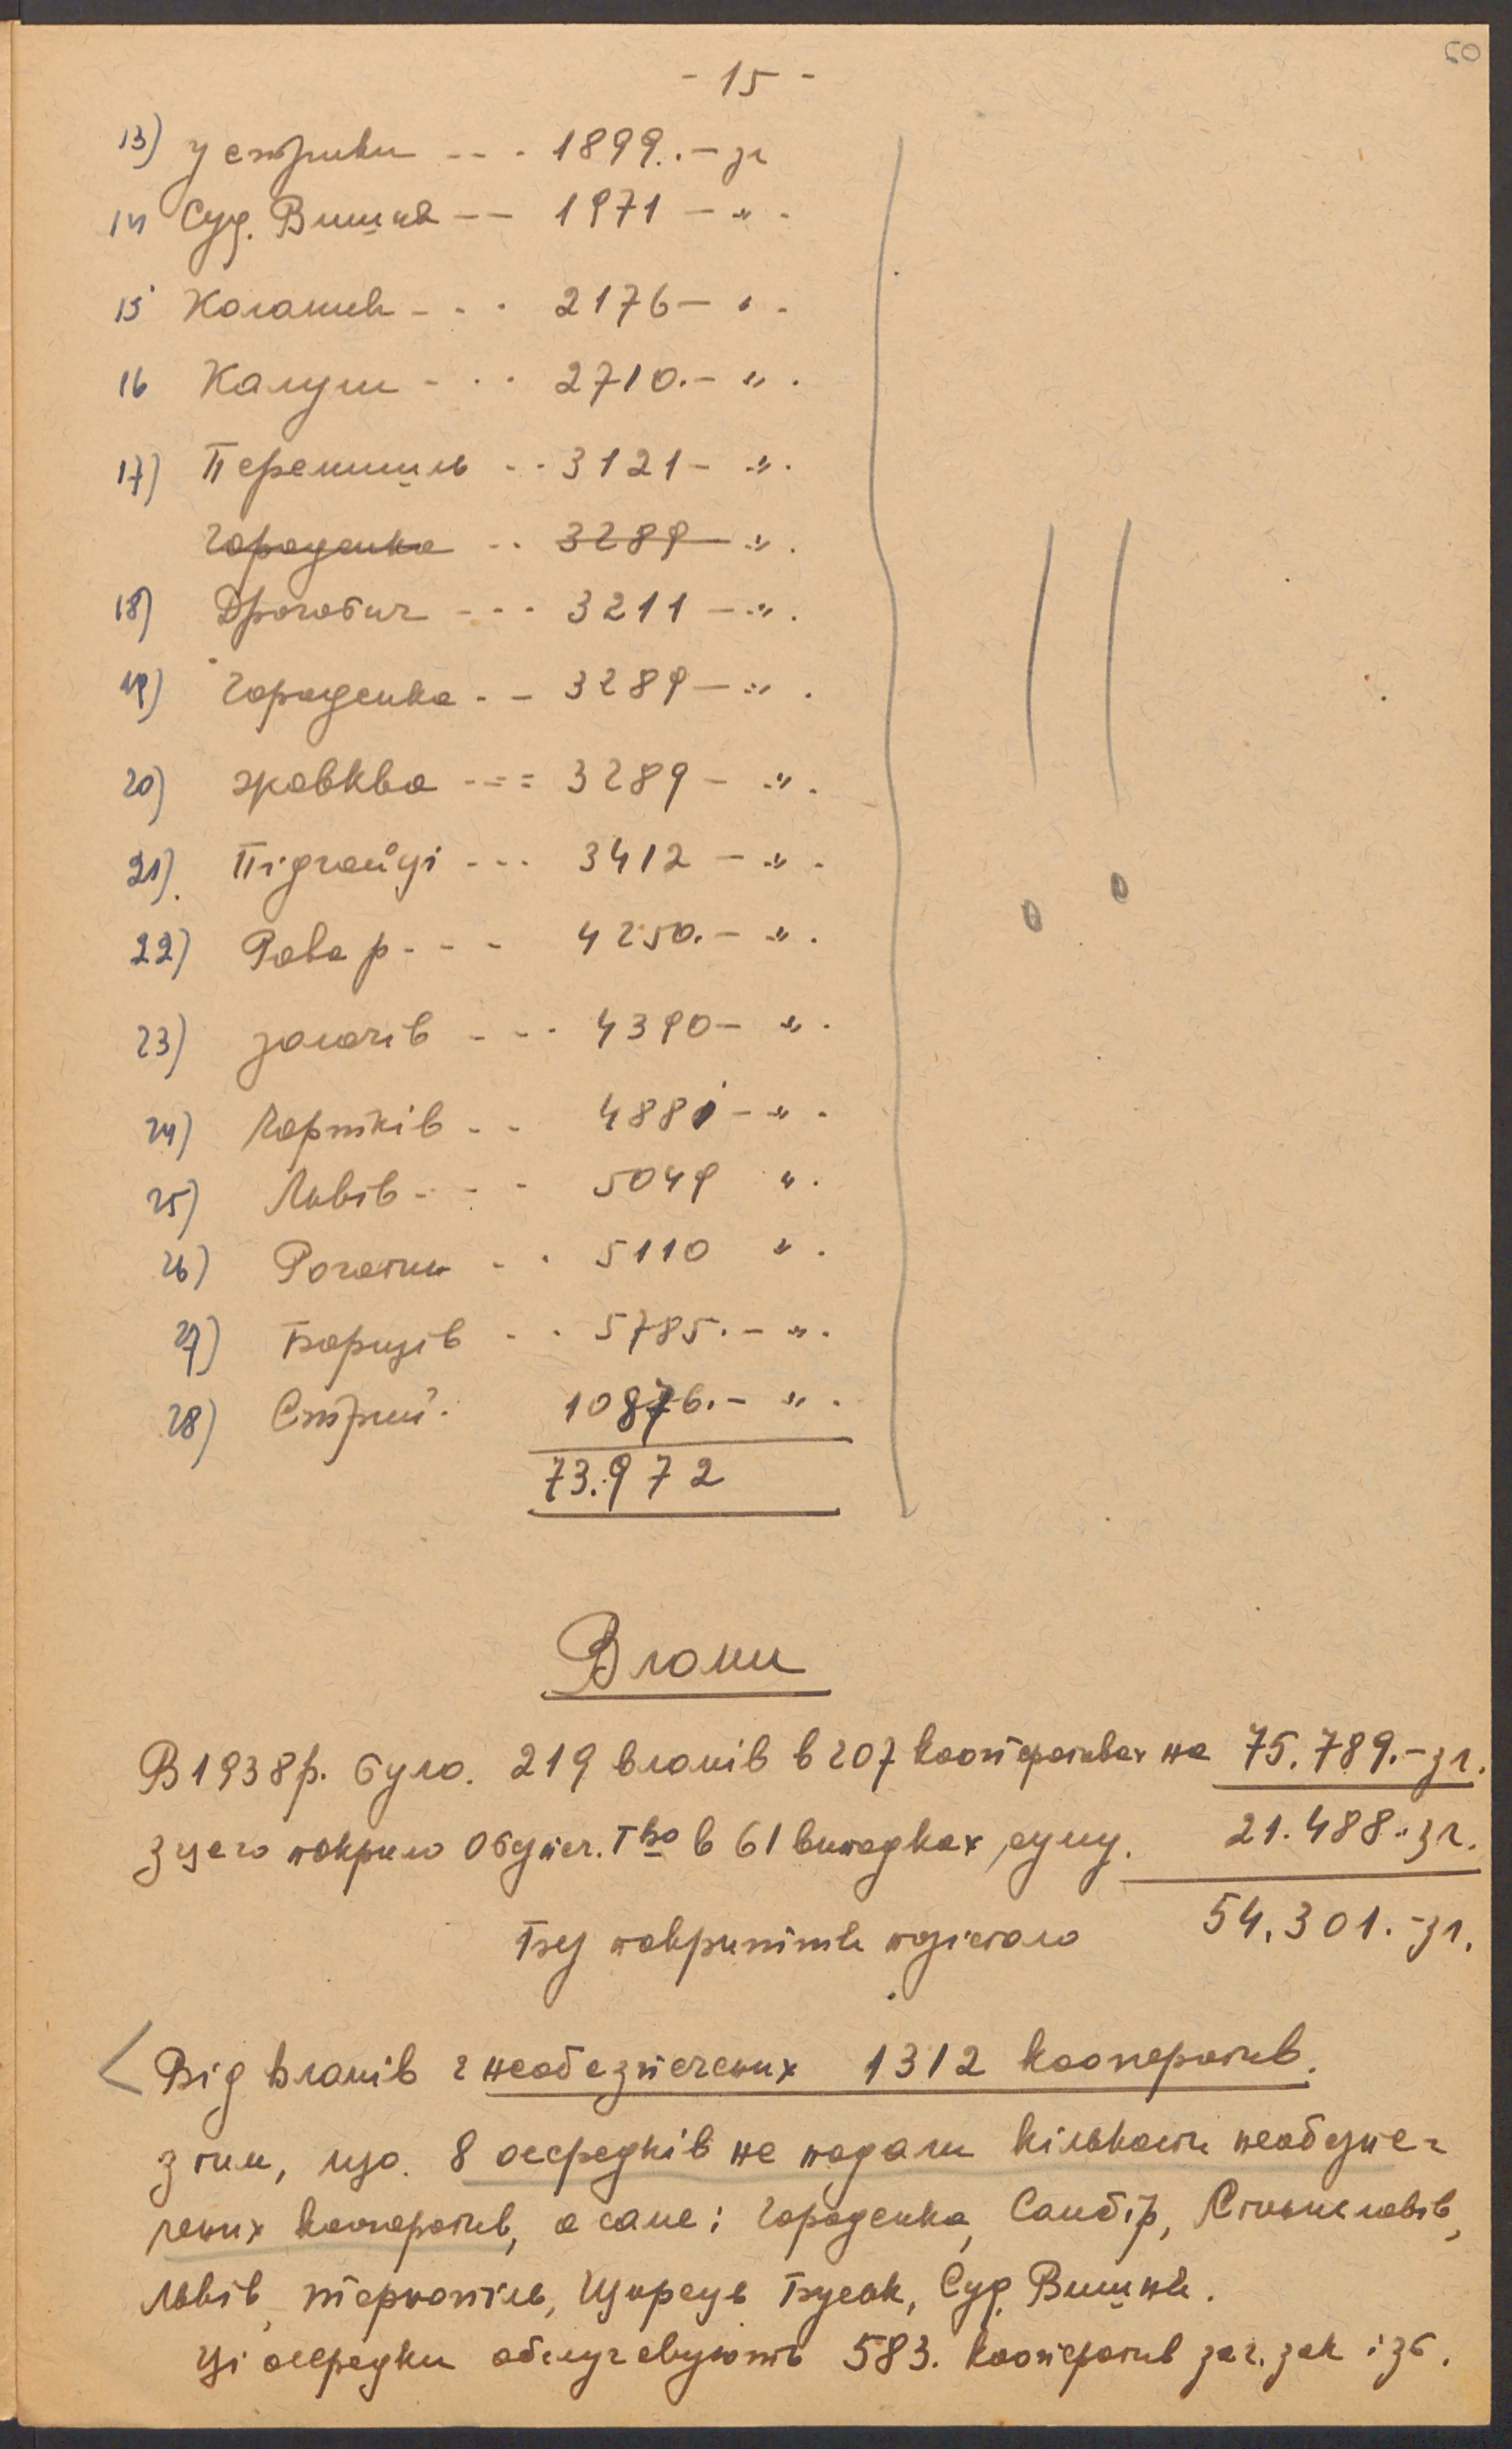 50
- 15 -
13) Устрики - - - 1899.- зл
14 Суд. Вишня - - 1971 - " -
15 Команч - - - 2176 - " -
16 Калуш - - - 2710.- " .
17) Перемишль - - 3121 - " .
Городенка - - 3289 - " .
18) Дрогобич - - - 3211 - " .
19) Городенка - - 3289 - " .
20) Жовква - - - 3289 - " .
21). Підгайці - - - 3412 - " -
22) Рава р - - - 4250.- " .
23) Золочів - - - 4390 - " .
24) Чортків - - 4881 - " .
25) Львів - - - 5049 " .
26) Рогатин - - 5110 " .
27) Борщів - - 5785.- " .
28) Стрий. 10876.- " .
73.972
Вломи
В 1938 р. було. 219 вломів в 207 кооперативах на 75.789.- зл.
з цего покрило Обезпеч. Тво в 61 випадках, суму. 21.488.- зл.
Без покриття позістало 54.301.- зл.
Від вломів є необезпечених 1312 кооператив.
з тим, що. 8 осередків не подали кількости необезпе-
чених кооператив, а саме: Городенка, Самбір, Станиславів,
Львів, Терно́піль, Щирець Буськ, Суд. Вишня.
Ці осередки обслуговують 583. кооператив заг. зак і зб.